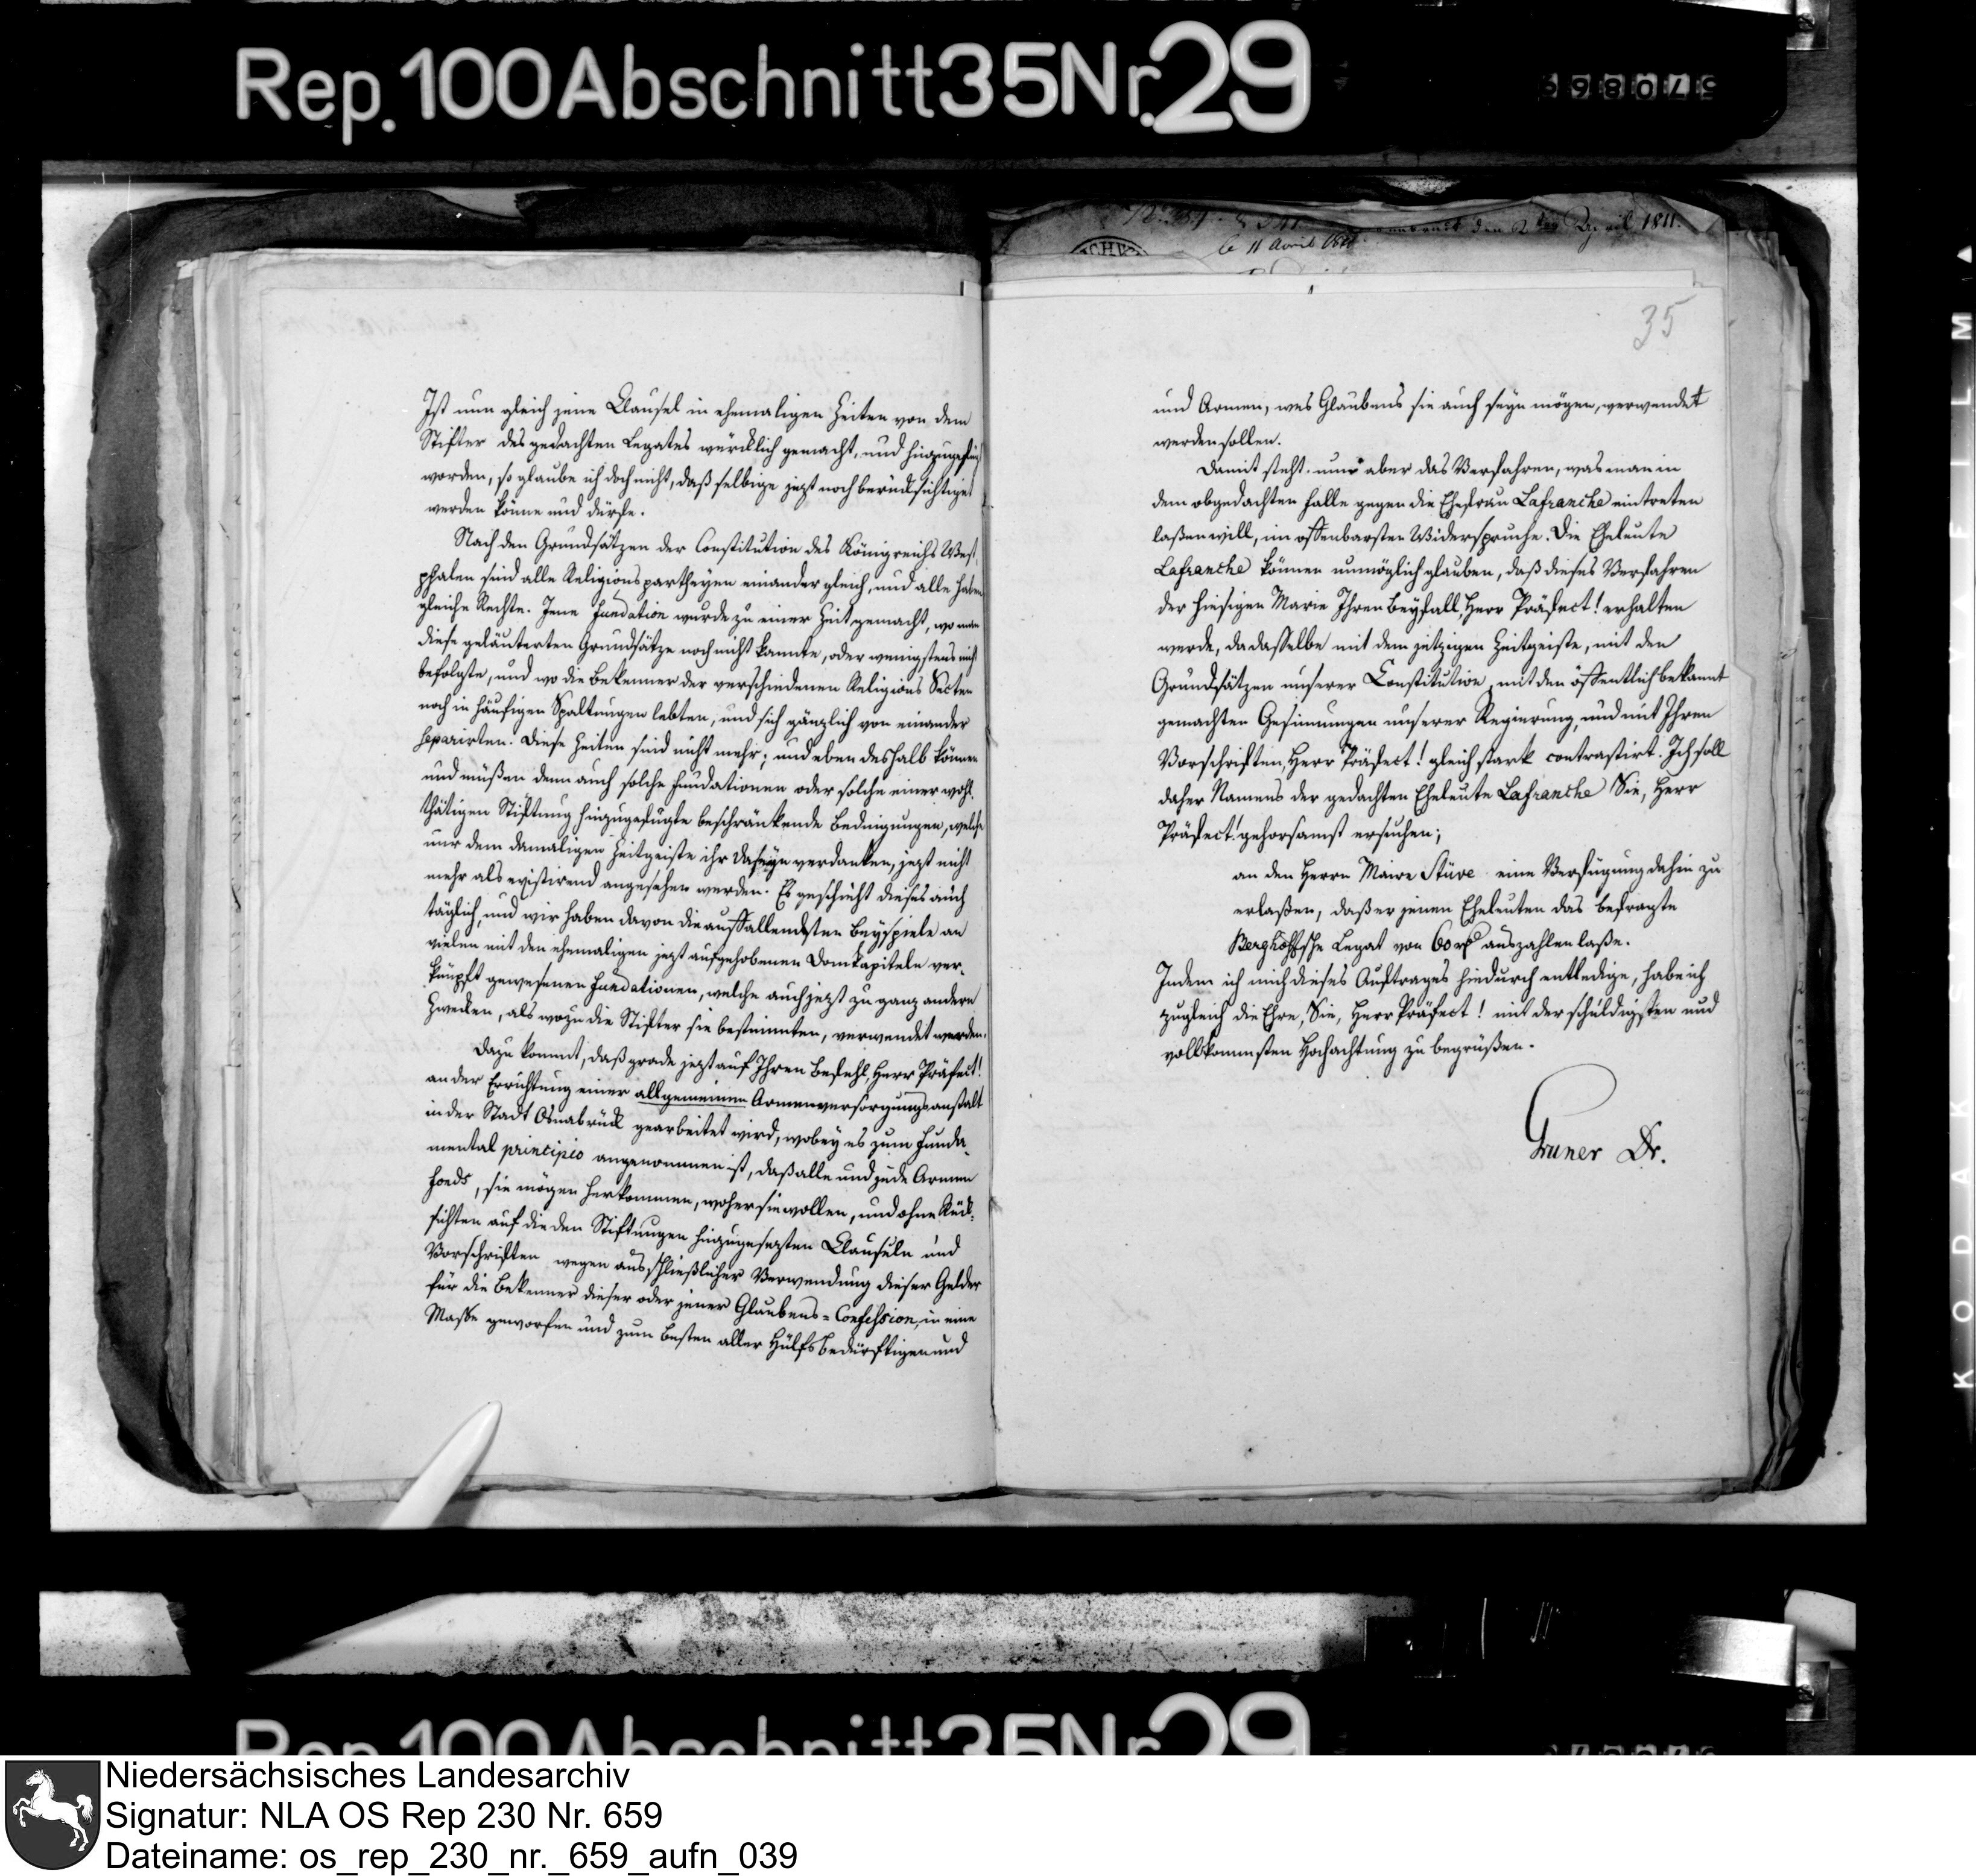 Rep. 100 Abschnitt 35 Nr. 29
le 11 Avril
den 2 ten April 1811.
35
Ist nun gleich jene Clausel in ehemaligen Zeiten von dem
Stifter des gedachten Legates würcklich gemacht, und hinzugefügt
worden, so glaube ich doch nicht, daß selbige jezt noch berücksichtiget
werden könne und dürfe.
Nach den Grundsätzen der Constitution des Königreichs West,
phalen sind alle Religionspartheyen einander gleich, und alle haben
gleiche Rechte. Jene Fundation wurde zu einer Zeit gemacht, wo man
diese geläuterten Grundsätze noch nicht kannte, oder wenigstens nicht
befolgte, und wo die Bekenner der verschiedenen Religions Secten
noch in häufigen Spaltungen lebten, und sich gänzlich von einander
separirten. Diese Zeiten sind nicht mehr; und eben deshalb können
und müßen denn auch solche Fundationen oder solche einer wohl,
thätigen Stiftung hinzugefügte beschränkende Bedingungen, welche
nur dem damaligen Zeitgeiste ihr Daseyn verdanken, jezt nicht
mehr als existirend angesehen werden. Es geschieht dieses auch
täglich, und wir haben davon die auffallendsten Beyspiele an
vielen mit den ehemaligen jezt aufgehobenen Domkapiteln ver,
knüpft gewesenen Fundationen, welche auch jezt zu ganz andern
Zwecken, als wozu die Stifter sie bestimmten, verwendet werden.
Dazu kommt, daß grade jezt auf Ihren Befehl, Herr Präfect!
an der Errichtung einer allgemeinen Armenversorgungsanstalt
in der Stadt Osnabrück gearbeitet wird, wobey es zum Funda,
mental principio angenommen ist, daß alle und jede Armen
fonds, sie mögen herkommen, woher sie wollen, und ohne Rück,
sichten auf die den Stiftungen hinzugesezten Clauseln und
Vorschriften wegen ausschließlicher Verwendung dieser Gelder
für die Bekenner dieser oder jener Glaubens-Confession, in eine
Masse geworfen und zum Besten aller Hülfsbedürftigen und
und Armen, wes Glaubens sie auch seyn mögen, verwendet
werden sollen.
Damit steht nun aber das Verfahren, was man in
dem obgedachten Falle gegen die Ehefrau Lafranche eintreten
laßen will, im offenbarsten Widerspruche. Die Eheleute
Lafranche können unmöglich glauben, daß dieses Verfahren
der hiesigen Marie Ihren Beyfall, Herr Präfect! erhalten
werde, da dasselbe mit dem jetzigen Zeitgeiste, mit den
Grundsätzen unserer Constitution, mit den öffentlich bekannt
gemachten Gesinnungen unserer Regierung, und mit Ihren
Vorschriften, Herr Präfect! gleich stark contrastirt. Ich soll
daher Namens der gedachten Eheleute Lafranche Sie, Herr
Präfect! gehorsamst ersuchen;
an den Herrn Maire Stüve eine Verfügung dahin zu
erlaßen, daß er jenen Eheleuten das befragte
Berghoffsche Legat von 60 auszahlen laße.
Indem ich mich dieses Auftrages hiedurch entledige, habe ich
zugleich die Ehre, Sie, Herr Präfect! mit der schuldigsten und
vollkommsten Hochachtung zu begrüßen.
Gruner Dr.
KODAK
Niedersächsisches Landesarchiv
Signatur: NLA OS Rep 230 Nr. 659
Dateiname: os_rep_230_nr._659_aufn_039